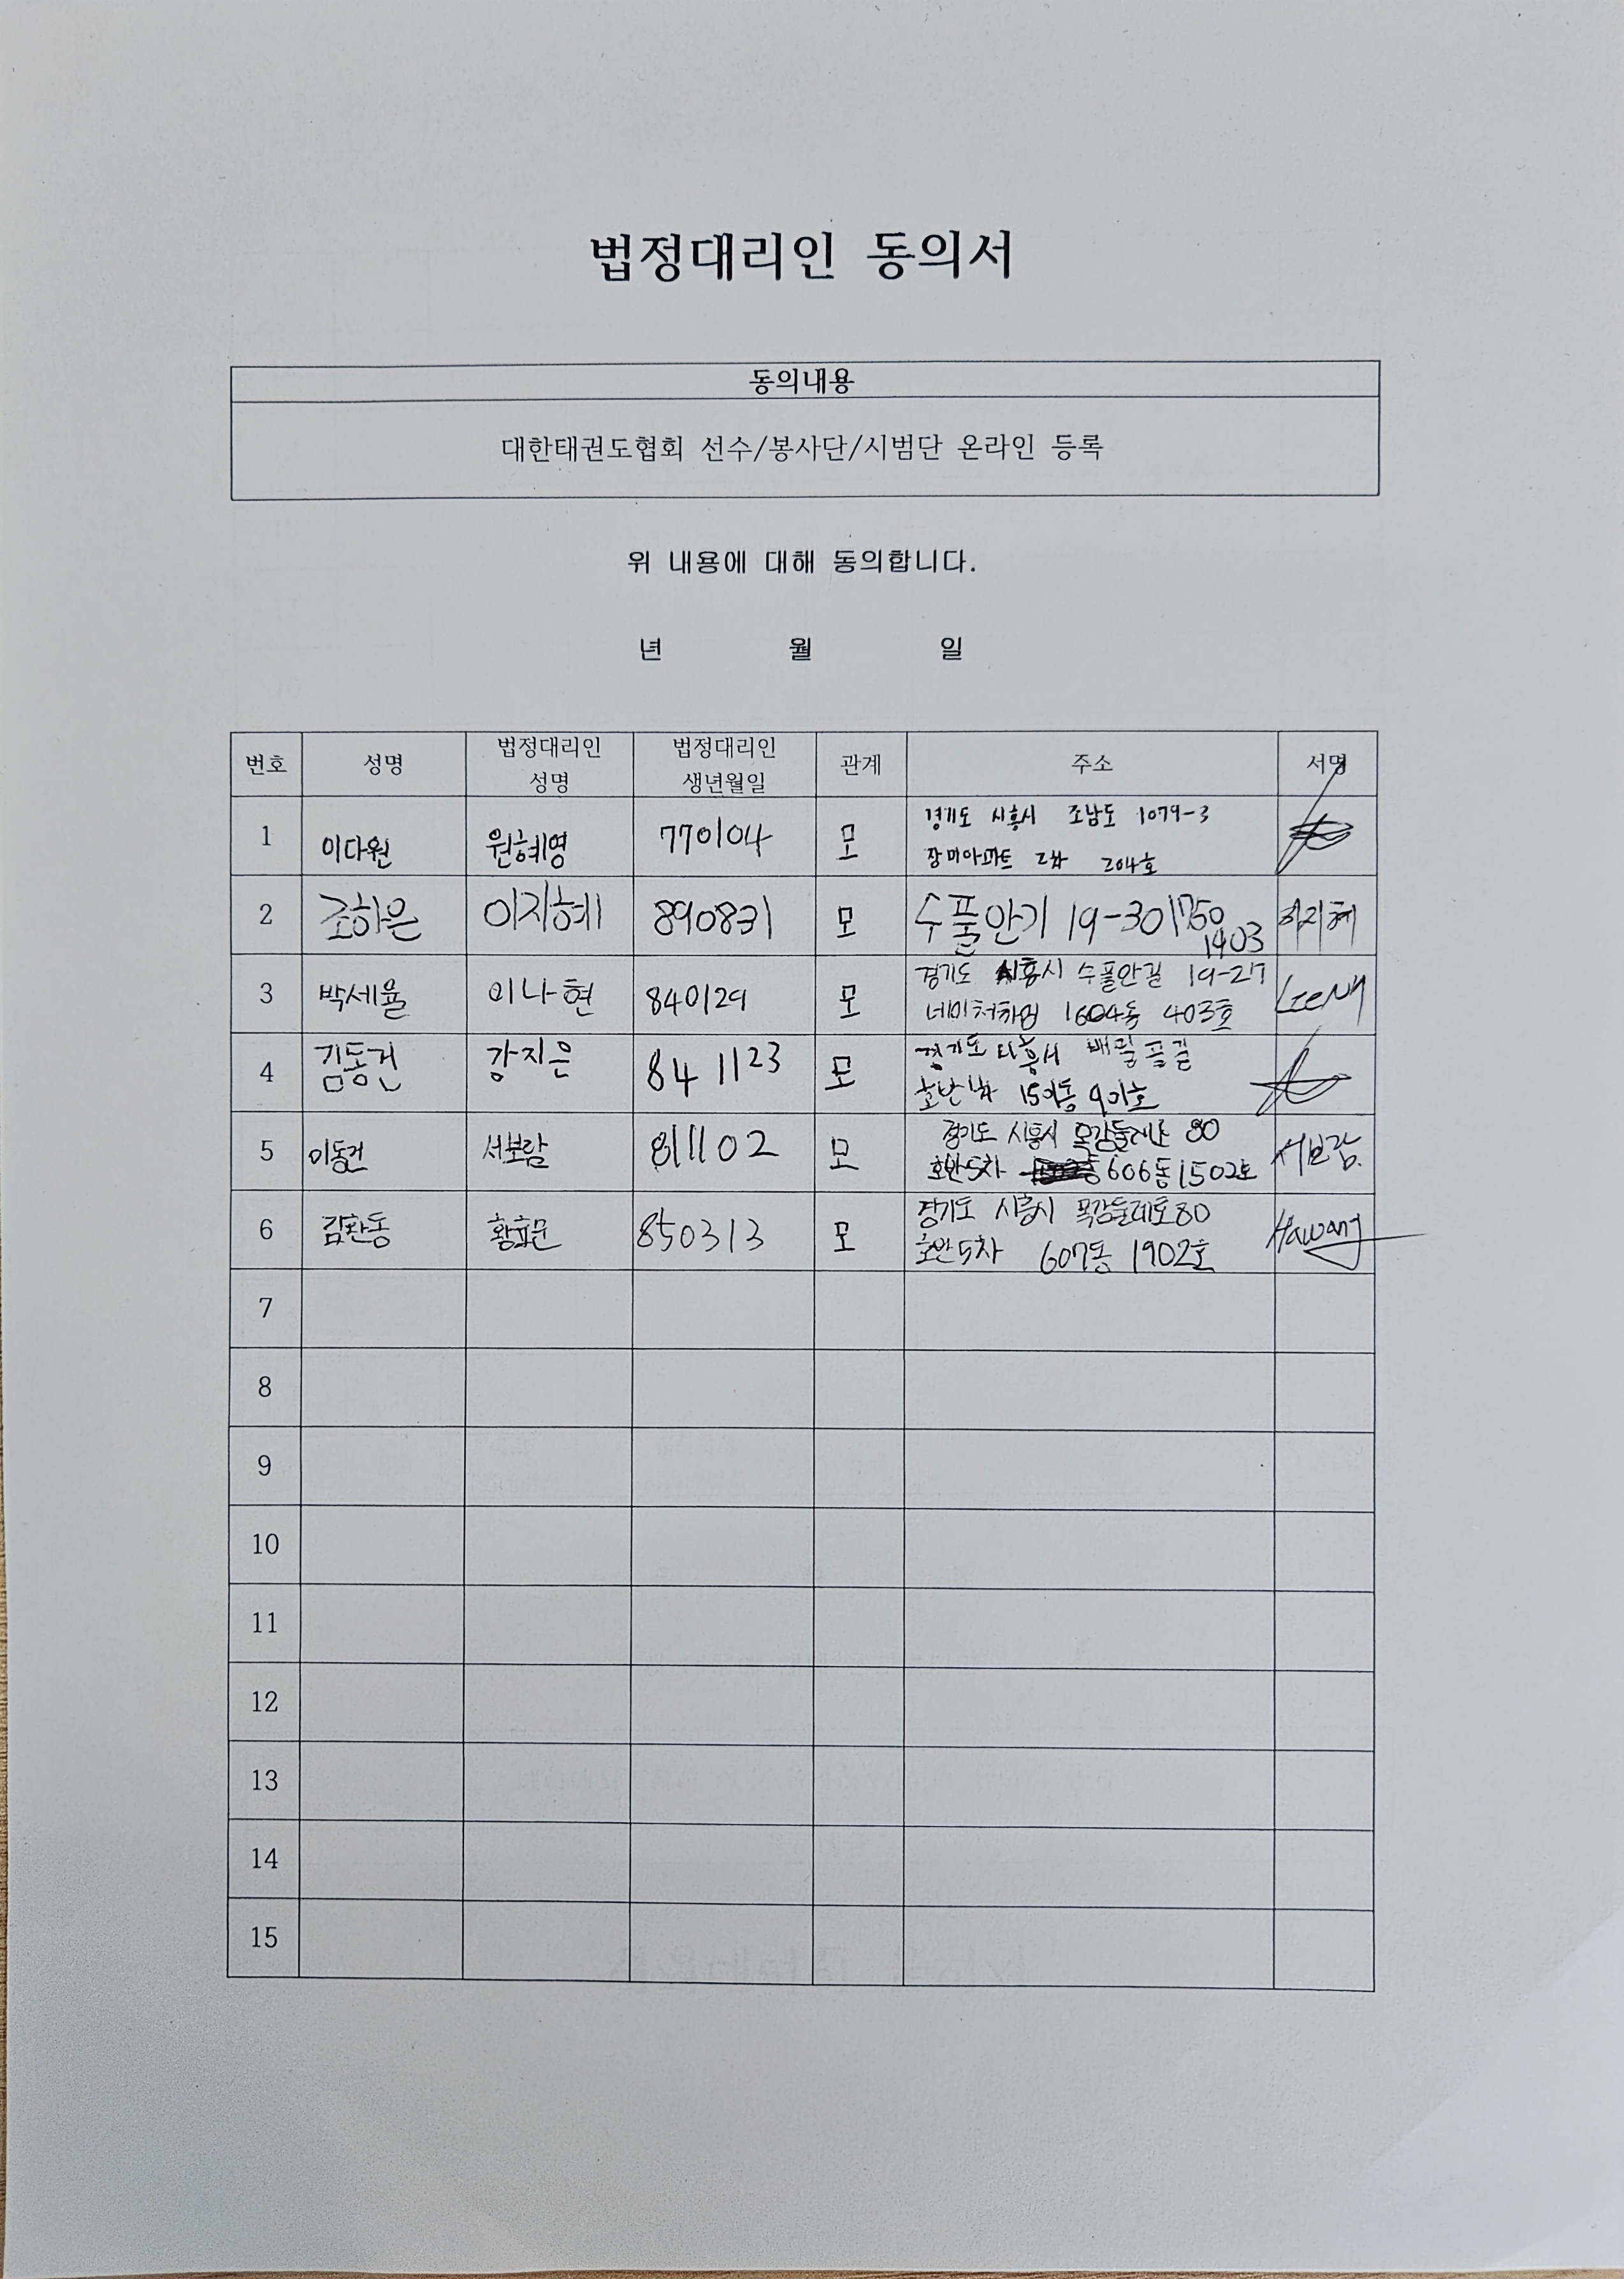 법정대리인 동의서
동의내용
대한태권도협회 선수/봉사단/시범단 온라인 등록
위 내용에 대해 동의합니다.
년 월 일
번호 성명 법정대리인 성명 법정대리인 생년월일 관계 주소 서명
1 이다원 원혜영 770104 모 경기도 시흥시 조남도 1079-3
장미아파트 2차 204호
2 조하은 이지혜 890831 모 수풀안기 19-30 1403 이지혜
3 박세율 이나현 840129 모 경기도 시흥시 수풀안길 19-27
네이처하임 1604동 403호
4 김동건 강지은 841123 모 경기도 시흥시
901호
5 이동건 서보람 811102 모 경기도 시흥시 목감둘레로 80
호반5차 606동 1502호 서보람
6 김환동 모 850313 경기도 시흥시 목감둘레로 80
호반5차 607동 1902호 Hawang
7
8
9
10
11
12
13
14
15